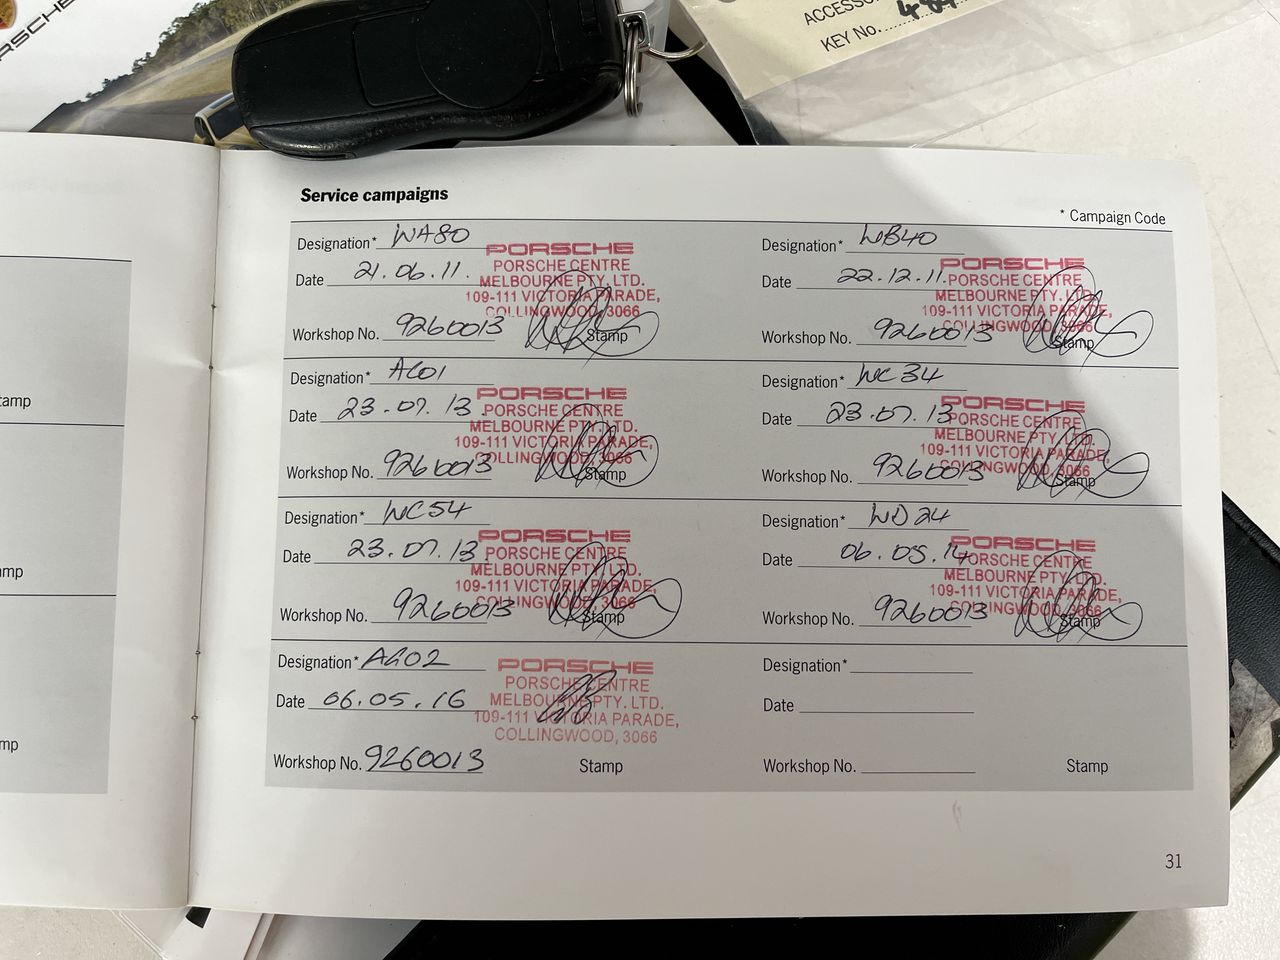 ACCESSO
KEY No.
Service campaigns
* Campaign Code
Designation* WA80
Date 21.06.11.
Workshop No. 9260013
PORSCHE
PORSCHE CENTRE
MELBOURNE PTY. LTD.
109-111 VICTORIA PARADE,
COLLINGWOOD, 3066
Stamp
Designation* WB40
Date 22.12.11.
Workshop No. 9260013
PORSCHE
PORSCHE CENTRE
MELBOURNE PTY. LTD.
109-111 VICTORIA PARADE,
COLLINGWOOD, 3066
Stamp
Designation* AC01
Date 23.07.13
Workshop No. 9260013
PORSCHE
PORSCHE CENTRE
MELBOURNE PTY. LTD.
109-111 VICTORIA PARADE,
COLLINGWOOD, 3066
Stamp
Designation* WC34
Date 23.07.13
Workshop No. 9260013
PORSCHE
PORSCHE CENTRE
MELBOURNE PTY. LTD.
109-111 VICTORIA PARADE,
COLLINGWOOD, 3066
Stamp
Designation* WC54
Date 23.07.13
Workshop No. 9260013
PORSCHE
PORSCHE CENTRE
MELBOURNE PTY. LTD.
109-111 VICTORIA PARADE,
COLLINGWOOD, 3066
Stamp
Designation* WD24
Date 06.05.14
Workshop No. 9260013
PORSCHE
PORSCHE CENTRE
MELBOURNE PTY. LTD.
109-111 VICTORIA PARADE,
COLLINGWOOD, 3066
Stamp
Designation*
Date 06.05.16
Workshop No. 9260013
PORSCHE
PORSCHE CENTRE
MELBOURNE PTY. LTD.
109-111 VICTORIA PARADE,
COLLINGWOOD, 3066
Stamp
Designation*
Date
Workshop No.
Stamp
31